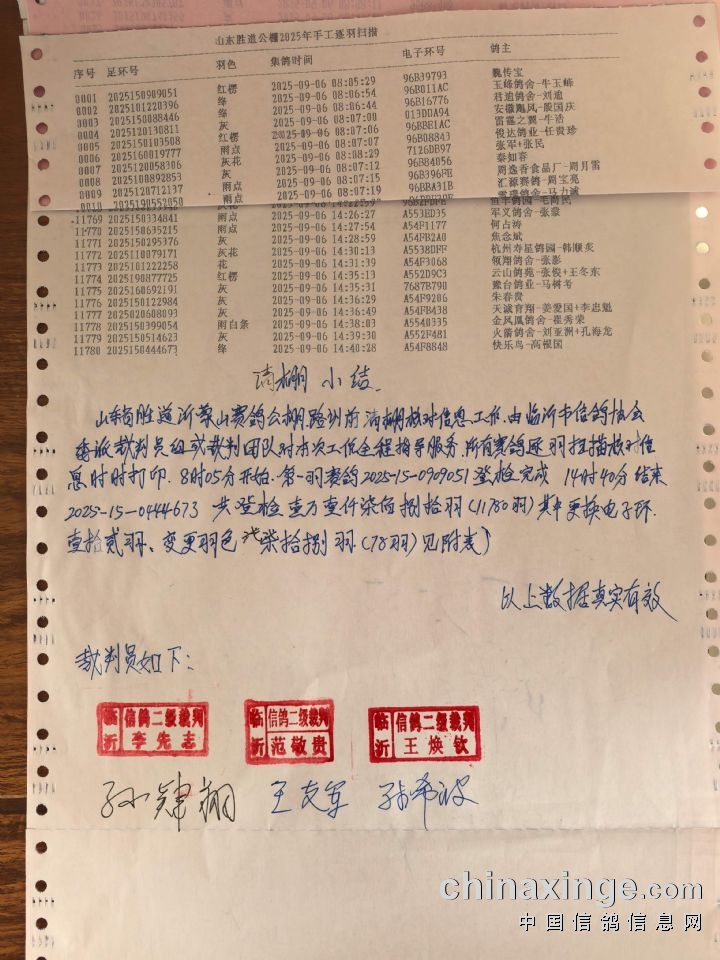 山东胜道公棚2025年手工逐羽扫描
序号 足环号 羽色 集鸽时间 电子环号 鸽主
0001 2025150909051 红楞 2025-09-06 08:05:29 96B39793 魏传宝
0002 2025101220396 绛 2025-09-06 08:06:54 96B011AC 玉峰鸽舍-牛玉峰
0003 2025150088446 绛 2025-09-06 08:06:44 96B16776 君迪鸽舍-刘迪
0004 2025120130811 灰 2025-09-06 08:07:00 013DDA94 安徽飚风-殷国庆
0005 2025150103508 红楞 2025-09-06 08:07:06 96BBE1AC 雷霆之翼-牛浩
0006 2025160019777 雨点 2025-09-06 08:07:12 96B08843 俊达鸽业-任贵珍
0007 2025120058306 灰花 2025-09-06 08:08:29 7126DB97 张军+张民
0008 2025100892853 灰 2025-09-06 08:07:12 96B84056 秦如春
0009 2025120712137 雨点 2025-09-06 08:07:15 96B396FE 周逸香食品厂-周月雷
0010 2025190552050 雨点 2025-09-06 08:07:19 96BBA31B 汇源赛鸽-周宝亮
11769 2025150334841 雨点 2025-09-06 14:26:27 A553ED35 军义鸽舍-张蒙
11770 2025150635215 雨点 2025-09-06 14:27:54 A54F1177 何占涛
11771 2025150295376 灰 2025-09-06 14:28:59 A54FB2A0 焦念斌
11772 2025110079171 灰花 2025-09-06 14:30:13 A5538DFF 杭州寿星鸽园-韩顺炎
11773 2025101222258 花 2025-09-06 14:31:39 A54F3068 领翔鸽舍-张影
11774 2025190877725 红楞 2025-09-06 14:35:13 A552D9C3 云山鸽苑-张俊+王冬东
11775 2025160692191 灰 2025-09-06 14:35:31 7687B790 豫台鸽业-马树考
11776 2025150122984 灰 2025-09-06 14:36:29 A54F9206 朱春贵
11777 2025020608093 灰 2025-09-06 14:36:49 A54FB438 天诚育翔-姜爱国+李忠魁
11778 2025150399054 雨白条 2025-09-06 14:38:03 A5540335 金凤凰鸽舍-崔秀荣
11779 2025150514623 灰 2025-09-06 14:39:30 A552F481 火箭鸽舍-刘亚洲+孔海龙
11780 2025150444673 绛 2025-09-06 14:40:28 A54F8848 快乐鸟-高根国
清棚小结
山东省胜道沂蒙山赛鸽公棚,路训前清棚核对信息工作.由临沂市信鸽协会
委派裁判员组成裁判团队对本次工作全程指导服务,所有赛鸽逐羽扫描核对信
息时时打印.8时05分开始.第一羽赛鸽2025-15-0909051登检完成 14时40分结束
2025-15-0444673 共登检 壹万壹仟柒佰捌拾羽(11780羽)其中更换电子环.
壹拾贰羽、变更羽色柒拾捌羽(78羽)见附表)
以上数据真实有效
裁判员如下:
临沂 信鸽二级裁判 李先志
临沂 信鸽二级裁判 范敬贵
临沂 信鸽二级裁判 王焕钦
王友军
chinaxinge.com
中国信鸽信息网